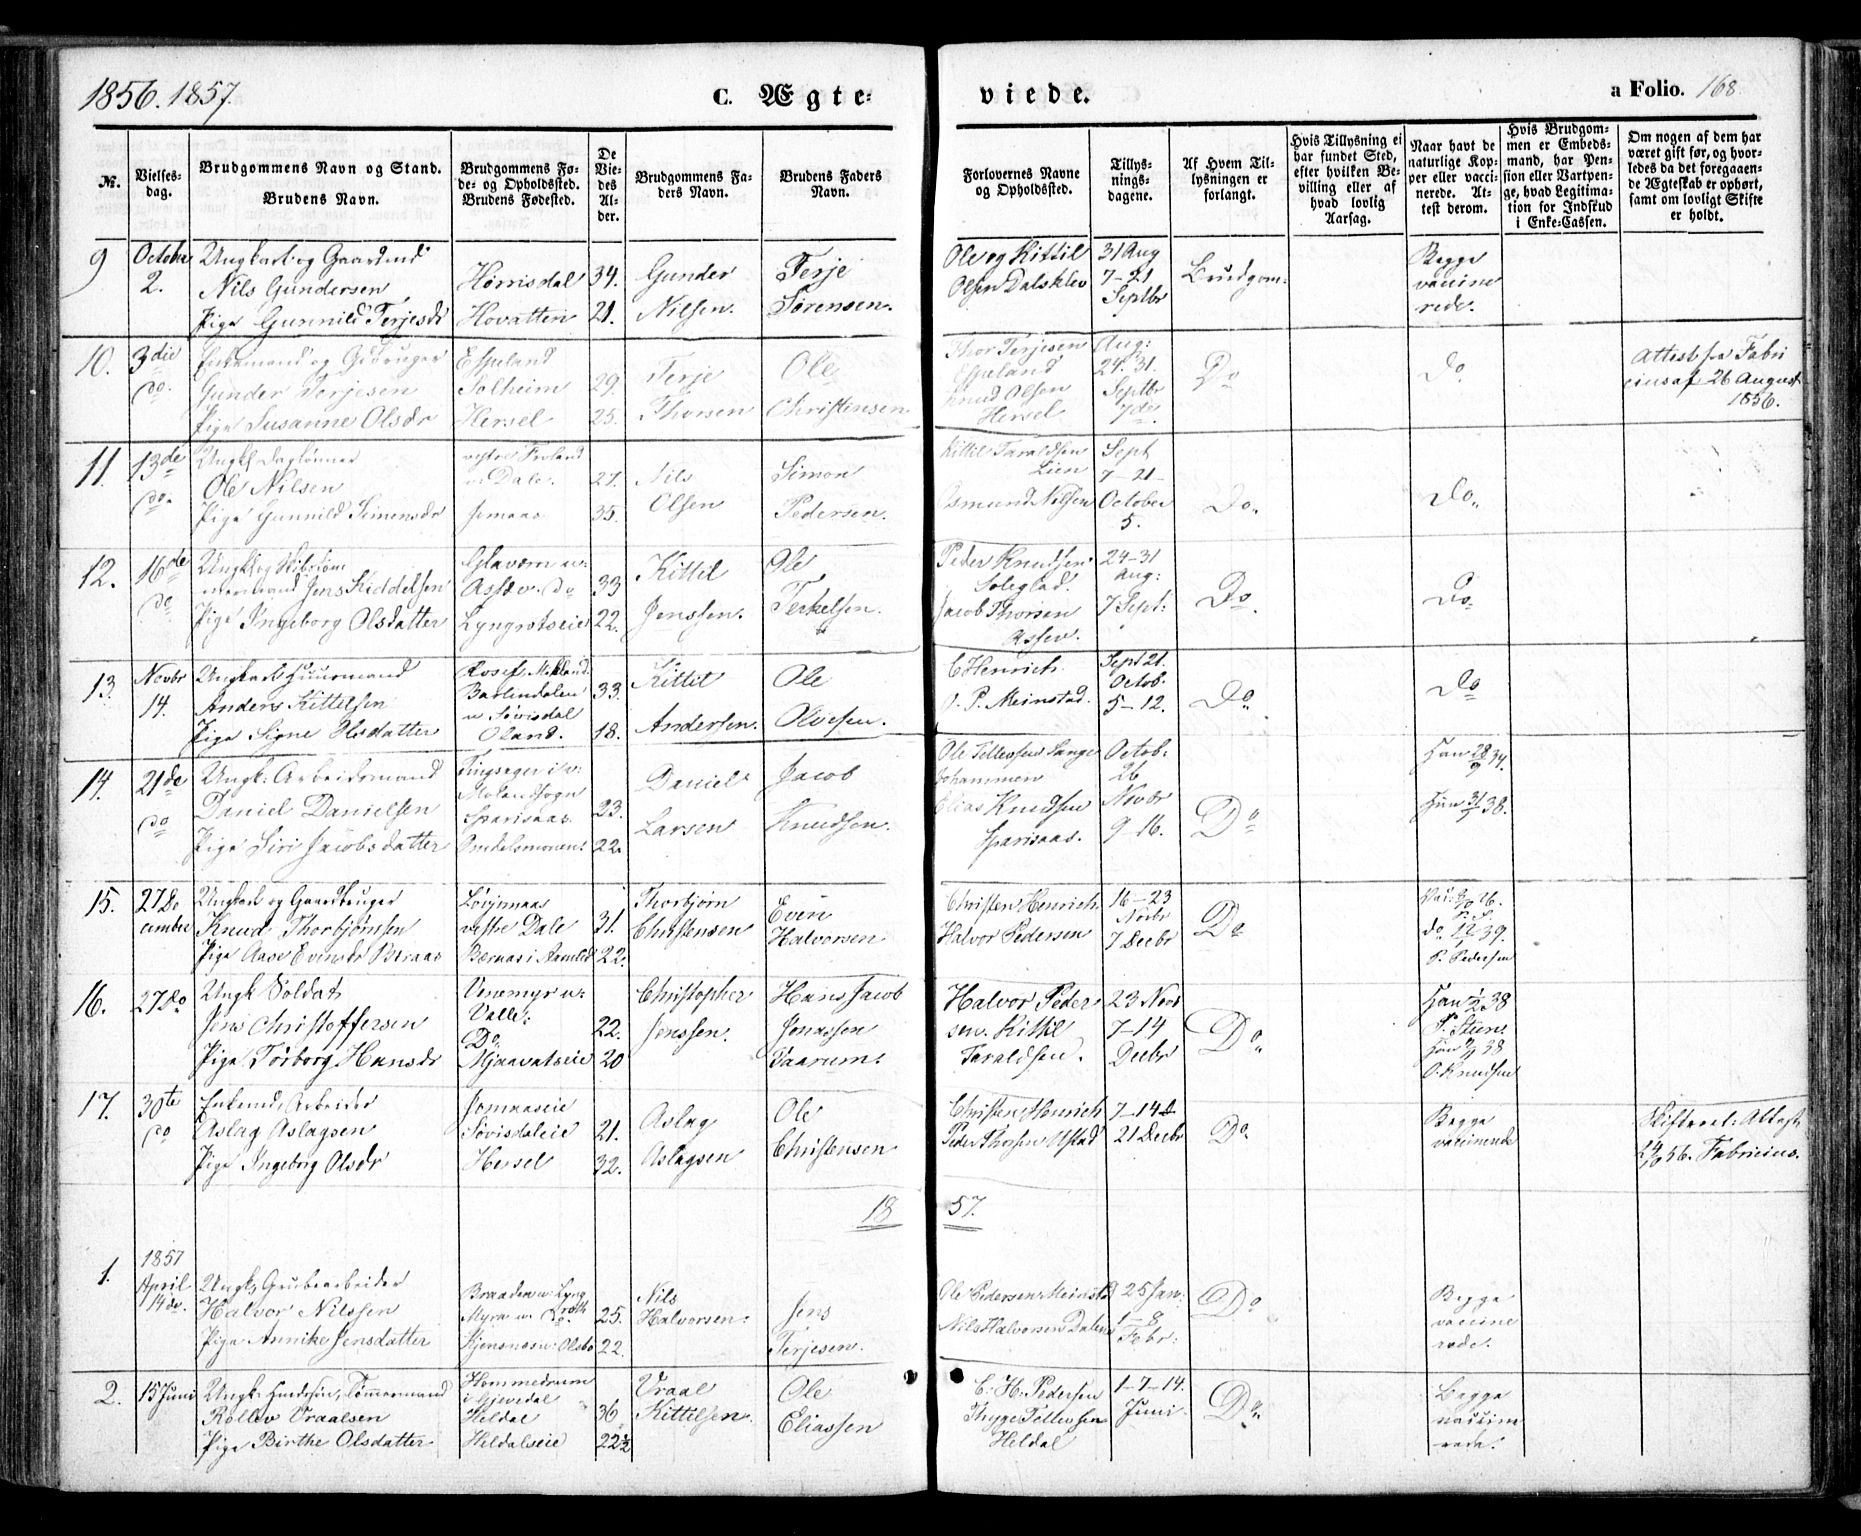 1856. 1857.
C. Ægte-
viede.
a Folio. 168
№.
Vielses-
dag.
Brudgommens Navn og Stand.
Brudens Navn.
Brudgommens Fø-
de- og Opholdssted.
Brudens Fødested.
De
Vie-
des
Al-
der.
Brudgommens Fa-
ders Navn.
Brudens Faders
Navn.
Forlovernes Navne
og Opholdssted.
Tillys-
nings-
dagene.
Af Hvem Til-
lysningen er
forlangt.
Hvis Tillysning ei
har fundet Sted,
efter hvilken Be-
villing eller af
hvad lovlig
Aarsag.
Naar havt de
naturlige Kop-
per eller vacci-
nerede. At-
test derom.
Hvis Brudgom-
men er Embeds-
mand, har Pen-
sion eller Vartpen-
ge, hvad Legitima-
tion for Indskud
i Enke-Cassen.
Om nogen af dem har
været gift før, og hvor-
ledes da det foregaaen-
de Ægteskab er ophørt,
samt om lovligt Skifte
er holdt.
9
October
2.
Ungkarl og Gaardmd
Nils Gundersen
Pige Gunnild Terjesdr
Hørrisdal
Hovatten
34.
21.
Gunder
Nilsen.
Terje
Sørensen.
Ole og Kittil
Olsen Dalsklev
31 Aug
7-21
Septbr
Brudgom:
Begge
vaccine
rede.
10.
3die
do.
Enkemand og Gbruger
Gunder Terjesen
Pige Susanne Olsdr
Espeland
Solheim
Hersel
29.
25.
Terje
Thorsen
Ole
Christensen
Thor Terjesen
Espeland
Knud Olsen
Hersel
Aug:
24. 31.
Septbr
7de.
Do
Do
Attest fra Fabri
cius af 26 August
1856.
11.
13de
do.
Ungk Daglønner
Ole Nilsen
Pige Gunnild Simensdr
vestre Froland
v. Dale.
Jomaas
27.
35.
Nils
Olsen
Simon
Pedersen.
Kittil Taraldsen
Lien
Osmund Nilsen
Sept
7-21-
October
5.
Do.
Do.
12.
16de
do
Ungk og Skibstøm
mermand Jens Kiddelsen
Pige Ingeborg Olsdatter
Assev. Do
Lyngrotseie
33
22.
Kittil
Jenssen.
Ole
Terkelsen.
Peder Knudsen
Soleglad.
Jacob Thorsen
Assev.
24-31
Aug:
7 Sept:
Do.
Do.
13.
Novbr
14.
Ungkarl Huusmand
Anders Kittelsen
Pige Signe Olsdatter
Rosef. Mykland
Bartendalen
v Søvisdal
Oland.
33.
18.
Kittil
Andersen.
Ole
Olvesen.
C Henrich
O. P. Meinstad.
Sept 21.
Octob.
5-12.
Do.
Do
14.
21de
do
Ungk: Arbeidsmand
Daniel Danielsen
Pige Siri Jacobsdatter
Tingsager i v:
Molandsogn
Sparisaas
23.
22.
Daniel
Larsen
Jacob
Knudsen.
Ole Tellefsen Lange
Johammen
Elias Knudsen
Sparisaas.
Octob:
26
Novbr
9-16.
Do
Han 28/9 34.
Hun 31/7 38.
15.
27 De
cember
Ungkarl og Gaardbruger
Knud Thorbjørnsen
Pige Aase Evensdr Beraas
Løvjnnaas
vestre Dale
Bernaas i Aamlid
31.
22.
Thorbjørn
Christensen
Even
Halvorsen
Christen Henrich
Halvor Pedersen
16-23
Novbr
7 Decbr
Do
P. S.
do 12/1 39.
P. Pedersen
16.
27 do
Ungk Soldat
Jens Christoffersen
Pige Torborg Hansdr
Venemyr u:
Valle.
Do.
Mjaavatseie
22.
20
Christopher
Jenssen.
Hans Jacob
Jonassen
Taarum.
Halvor Peder
sen. Kittil
Taraldsen.
23 Novr
7-14
Decbr
Do.
Han 1/2 38
P. Steen
Hun 9/7 38
O. Knudsen
17.
30te
do
Enkemd, Arbeider
Aslag Aslagsen
Pige Ingeborg Olsdr
Jomaaseie
Søvisdaleie
Hersel
21.
32.
Aslag
Aslagsen
Ole
Christensen
Christen Henrich
Peder Thorsen Ustad
7-14 &
21 Decbr
Do.
Begge
vaccinerede
Skifteret: Attest
29/10 56. Fabricius.
18
57.
1.
1857
April
14de.
Ungk, Grubearbeider
Halvor Nilssen
Pige Annike Jensdatter
Braaden u. Lyng
roth
Myra u. Do.
Kjensnes u: Olsbo
25.
22.
Nils
Halvorsen.
Jens
Terjesen.
Ole Pedersen Meinstad
Nils Halvorsen Dalen
25 Jan:
1-8
Febr:
Do
Begge
vaccine
rede.
2.
15 Juni
Ungk: Huusfin, Tømmermand
Rollev Vraalsen
Pige Birthe Olsdatter
Hommedrum
i Gjevedal
Heldal
Heldalseie
36
22½
Vraal
Kittilsen.
Ole
Eliassen
C: H: Pedersen
Thyge Tellefsen
Heldal
1-7-14.
Juni.
Do.
Begge
vaccine
rede.